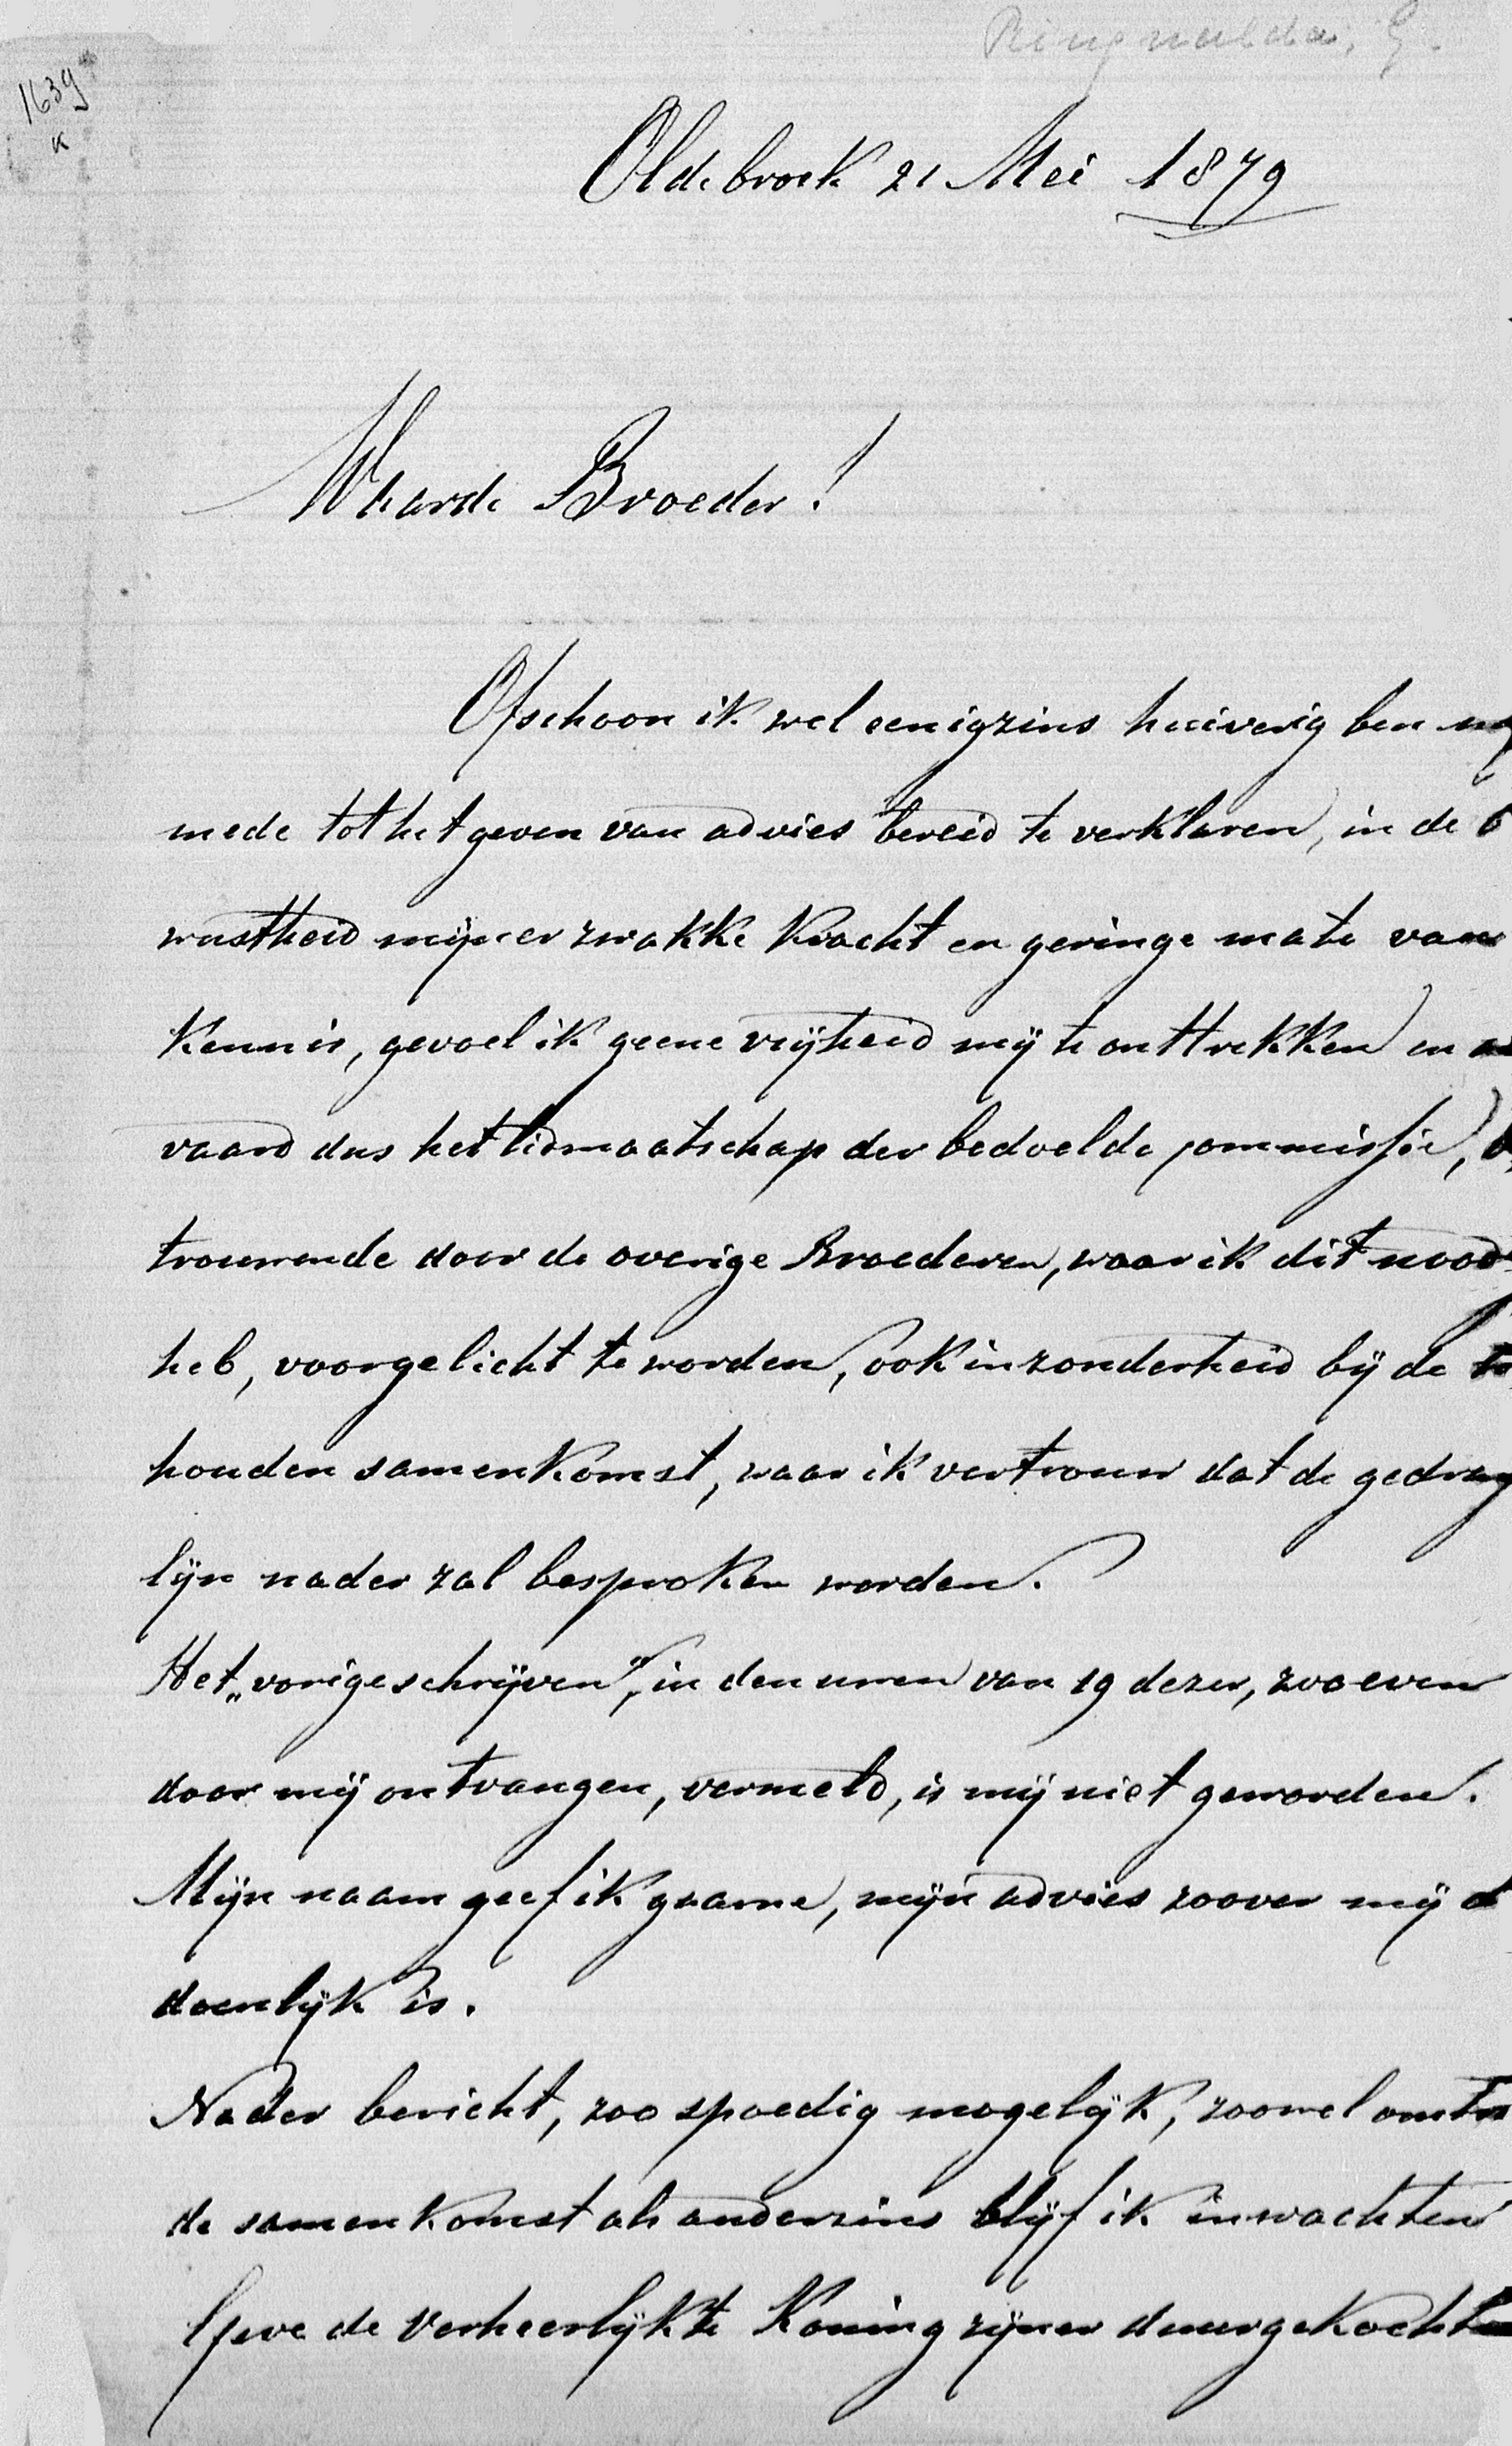 Ringnalda, G.
1639
K
Oldebroek 21 Mei 1879
Waarde Broeder!
Ofschoon ik wel eenigzins huiverig ben mij
mede tot het geven van advies bereid te verklaren, in de b
wustheid mijner zwakke kracht en geringe mate van
kennis, gevoel ik geene vrijheid mij te onttrekken en
vaard dus het lidmaatschap der bedoelde commissie,
trouwende door de overige Broederen, waar ik dit noodig
heb, voorgelicht te worden, ook inzonderheid bij de te
houden samenkomst, waar ik vertrouw dat de gedrag
lijn nader zal besproken worden.
Het „vorige schrijven", in den uwen van 19 dezer, zoo even
door mij ontvangen, vermeld, is mij niet geworden.
Mijn naam geef ik gaarne, mijn advies zoover mij d
doenlijk is.
Nader bericht, zoo spoedig mogelijk, zoowel omtre
de samenkomst als anderzins blijf ik inwachten
Geve de verheerlijkte Koning zijner duurgekochte